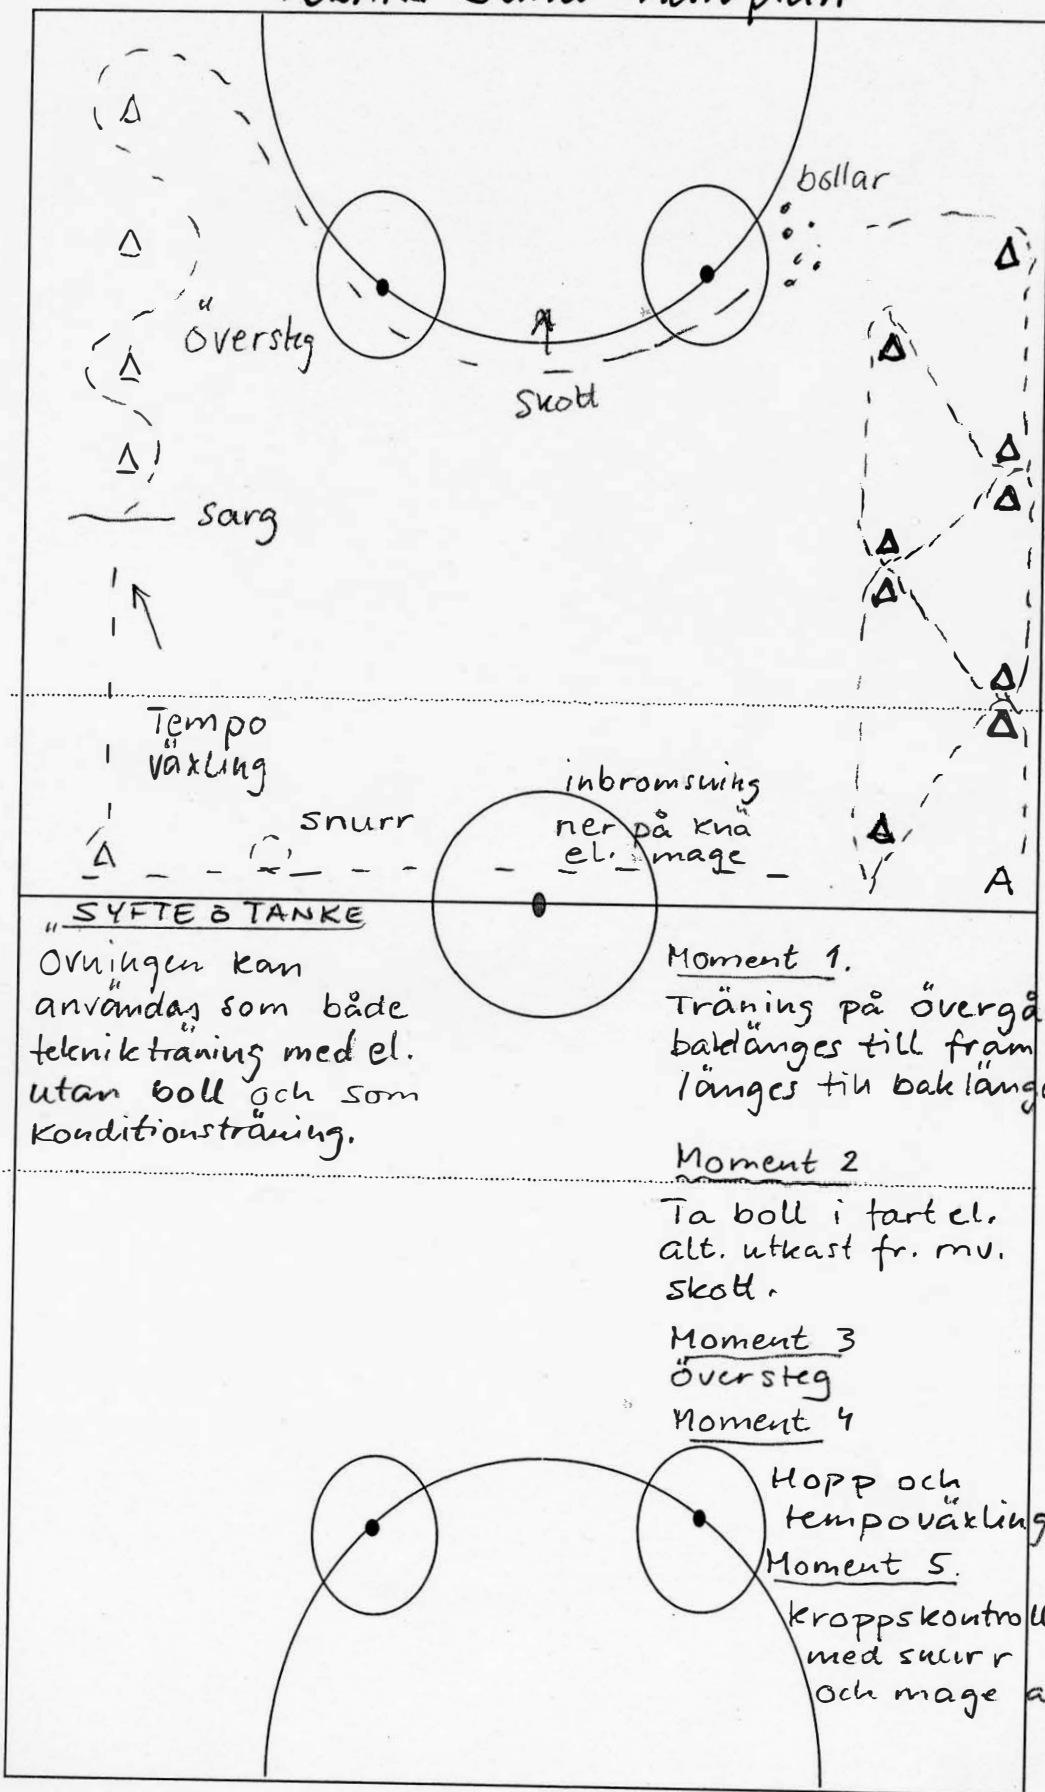 bollar
Översteg
Skott
sarg
Tempo
växling
snurr
inbromsning
ner på knä
el. mage
A
SYFTE & TANKE
Övningen kan
användas som både
teknikträning med el.
utan boll och som
Konditionsträning.
Moment 1.
Träning på övergå
baklänges till fram
länges till baklänge
Moment 2
Ta boll i fart el.
alt. utkast fr. mv.
skott.
Moment 3
översteg
Moment 4
Hopp och
tempoväxling
Moment 5.
kroppskontroll
med snurr
och mage a